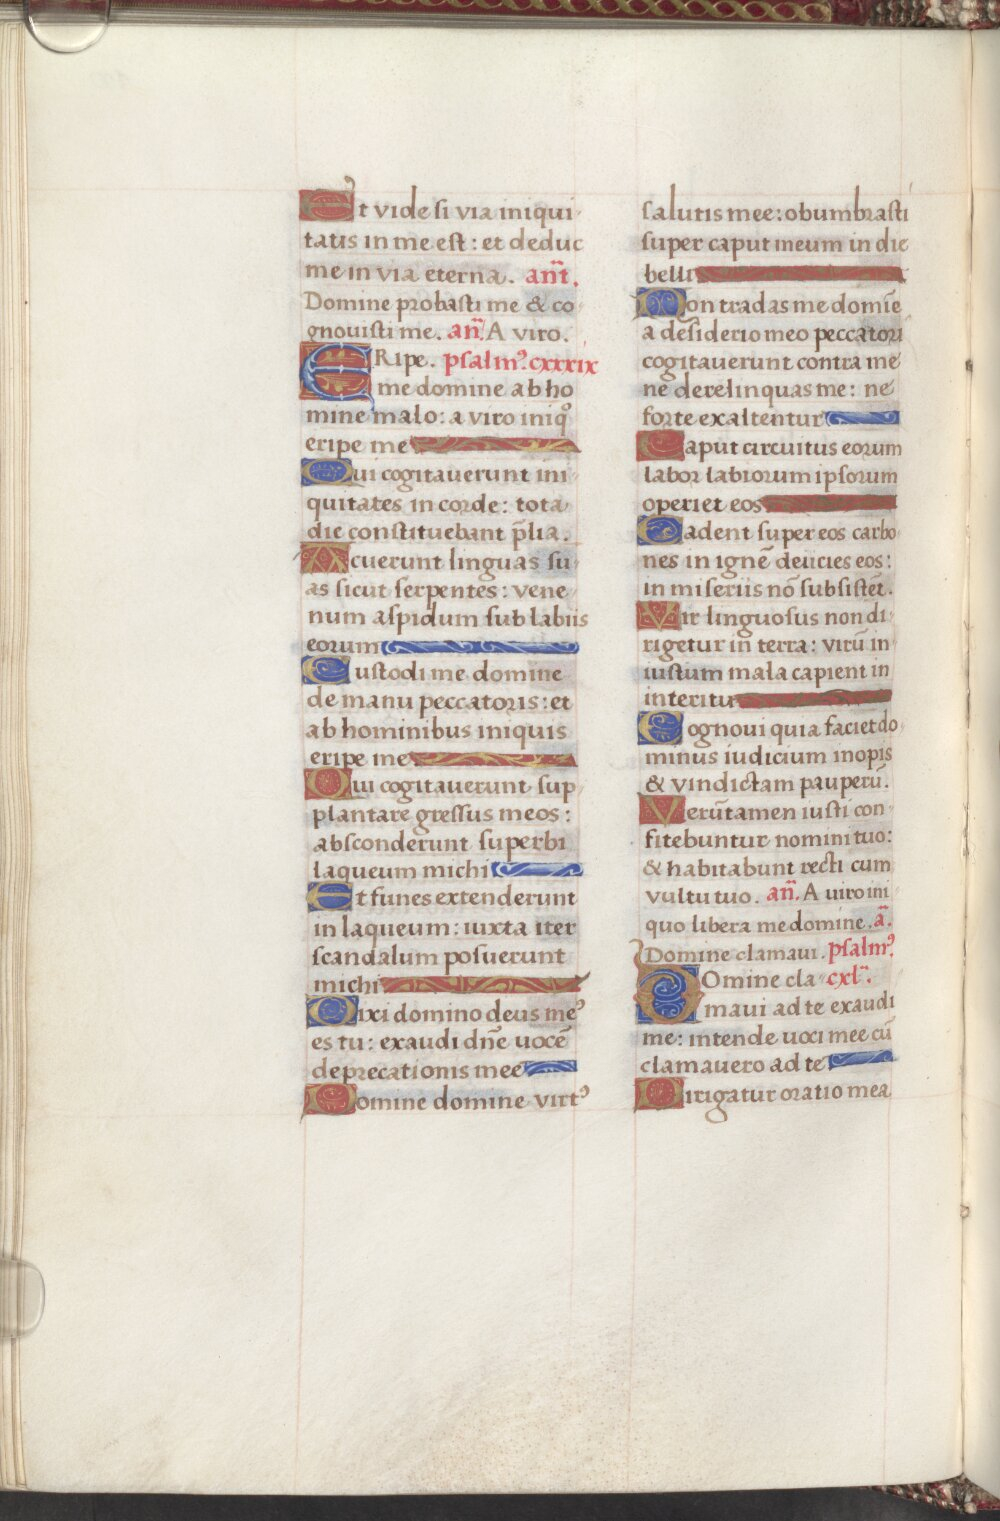 Et vide si via iniqui
tatis in me est: et deduc
me in via eterna. an̄t.
Domine probasti me & co
gnovisti me. an̄. A viro.
ERipe. psalmꝰ. cxxxix
me domine ab ho
mine malo: a viro iniqͦ
eripe me
Qui cogitaverunt ini
quitates in corde: tota
die constituebant p̄lia.
Acuerunt linguas su
as sicut serpentes: vene
num aspidum sub labiis
eorum
Custodi me domine
de manu peccatoris: et
ab hominibus iniquis
eripe me
Qui cogitaverunt sup
plantare gressus meos:
absconderunt superbi
laqueum michi
Et funes extenderunt
in laqueum: iuxta iter
scandalum posuerunt
michi
Dixi domino deus meꝰ
es tu: exaudi dn̄e vocē
deprecationis mee
Domine domine virtꝰ
salutis mee: obumbrasti
super caput meum in die
belli
Non tradas me domīe
a desiderio meo peccatori
cogitaverunt contra me
ne derelinquas me: ne
forte exaltentur
Caput circuitus eorum
labor labiorum ipsorum
operiet eos
Cadent super eos carbo
nes in ignē deiicies eos:
in miseriis nō subsistēt.
Vir linguosus non di
rigetur in terra: virū in
iustum mala capient in
interitu
Cognovi quia faciet do
minus iudicium inopis
& vindictam pauperū.
Verūtamen iusti con
fitebuntur nomini tuo:
& habitabunt recti cum
vultu tuo. an̄. A viro ini
quo libera me domine. ā.
Domine clamavi. psalmꝰ.
DOmine cla cxl.
mavi ad te exaudi
me: intende voci mee cū
clamavero ad te
Dirigatur oratio mea